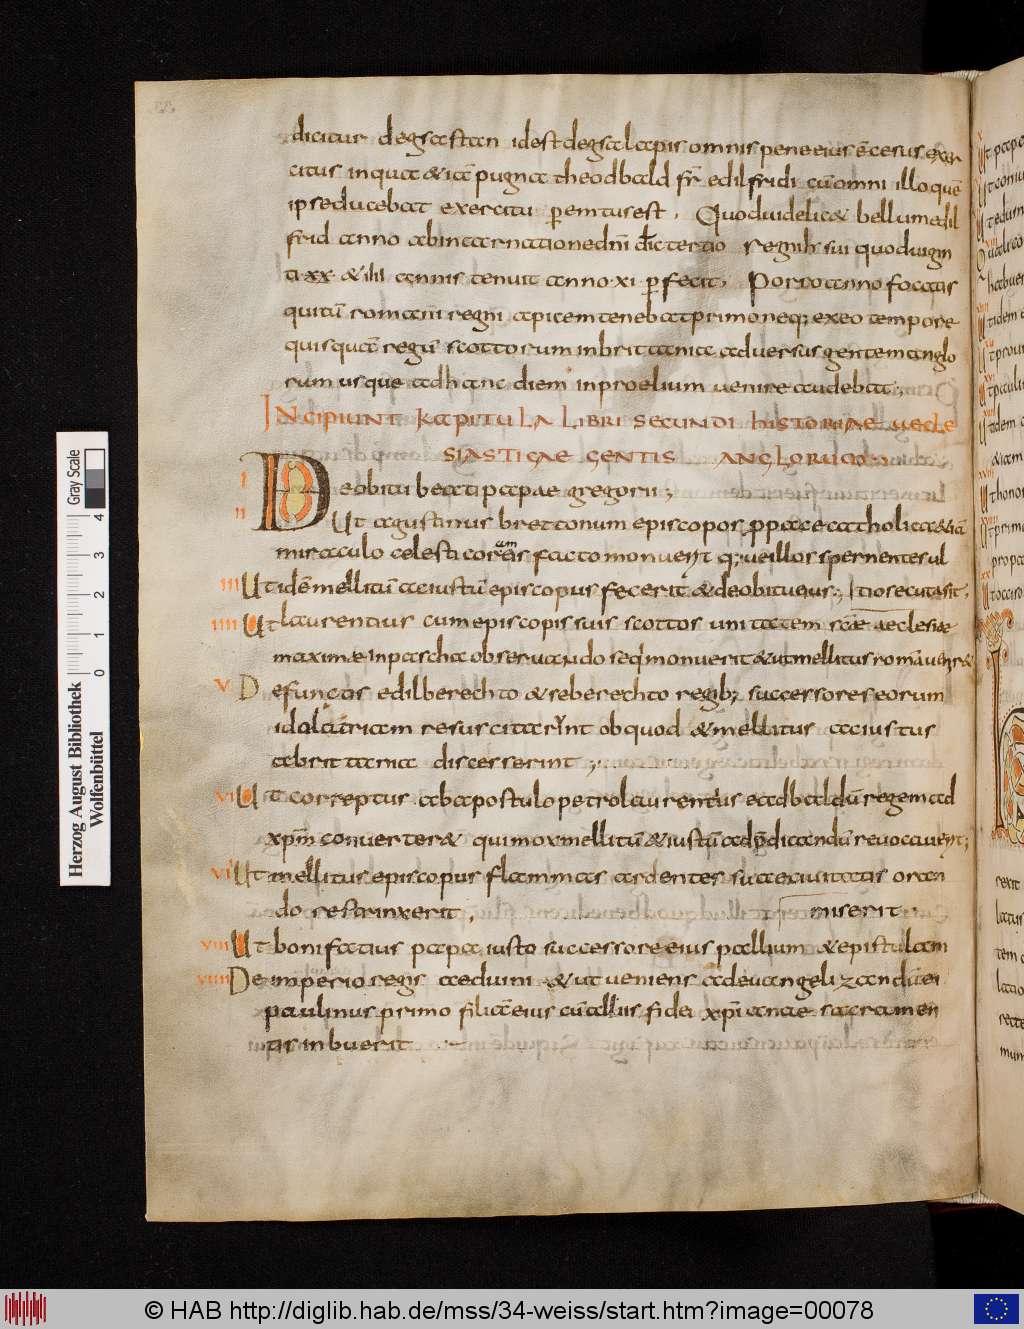 dicitur degsastan id est degsalapis omnis pene eius ēcesus exer
citus in qua & iā pugna theodbald fr̄ edilfridi cū omni illo quē
ipse ducebat exercitu ꝑemtus est. Quod uidelic& bellum edil
frid anno ab incarnatione dn̄i dc tertio regni
sui quod uigin
ti xx & iiii annis tenuit anno xi ꝑfecit; Porro anno focatis
qui tū romani regni apicem tenebat primo neq; ex eo tempore
quisquā regū scottorum in brittania aduersus gentem anglo
rum usque ad hanc diem in proelium uenire audebat;
INCIPIUNT KAPITULA LIBRI SECUNDI HISTORIAE AECLE
SIASTICAE GENTIS ANGLORUM
I DE obitu beati papae gregorii;
II Ut agustinus brettonum episcopos ꝓ pace catholica & iā
miraculo celesti coram eis facto monuerit q; ue illos spernentes ul
III Ut idē mellitū ac iustū episcopus fecerit & de obitu eius; tio secuta sit.
IIII Ut laurentius cum episcopis suis scottos unitatem scāe aeclesiae
maxime in pascha obseruando sequi monuerit & ut mellitus romā uener&
V Defunctis edilberechto & seberechto regib; successores eorum
idolatriam resuscitarint ob quod & mellitus ac iustus
a brittania discesserint;
VI Ut correptus ab apostulo petro laurentius eadbaldū regem ad
xp̄m conuerter& qui mox mellitū & iustū ad p̄dicandū reuocauerit;
VII Ut mellitus episcopus flammas ardentes suae ciuitatis oran
do restrinxerit, miserit
VIII Ut bonifatius papa iusto successore eius pallium & epistulam
VIIII De imperio regis aeduini & ut ueniens ad euangelizandū ei
paulinus primo filiā eius cū aliis fidei xp̄ianae sacramen
tis inbuerit
Herzog August Bibliothek
Wolfenbüttel
Gray Scale
0 1 2 3 4
© HAB http://diglib.hab.de/mss/34-weiss/start.htm?image=00078